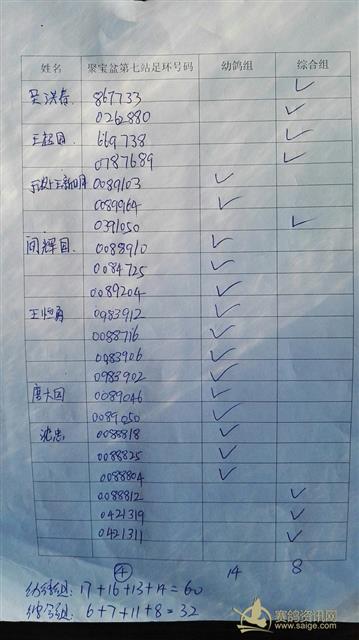 姓名 聚宝盆第七站足环号码 幼鸽组 综合组
吴洪春 867733 ✓
0262880 ✓
王超国 669738 ✓
0787689 ✓
0089103 ✓
0089964 ✓
0391050 ✓
闻辉国 0088910 ✓
0084725 ✓
0089204 ✓
王恒勇 0983912 ✓
0088716 ✓
0983906 ✓
0983902 ✓
唐大国 0089046 ✓
0089050 ✓
沈忠 0088818 ✓
0088825 ✓
0088804 ✓
0088812 ✓
0421319 ✓
0421311 ✓
④ 14 8
幼鸽组: 17+16+13+14=60
综合组: 6+7+11+8=32
赛鸽资讯网
www.saige.com